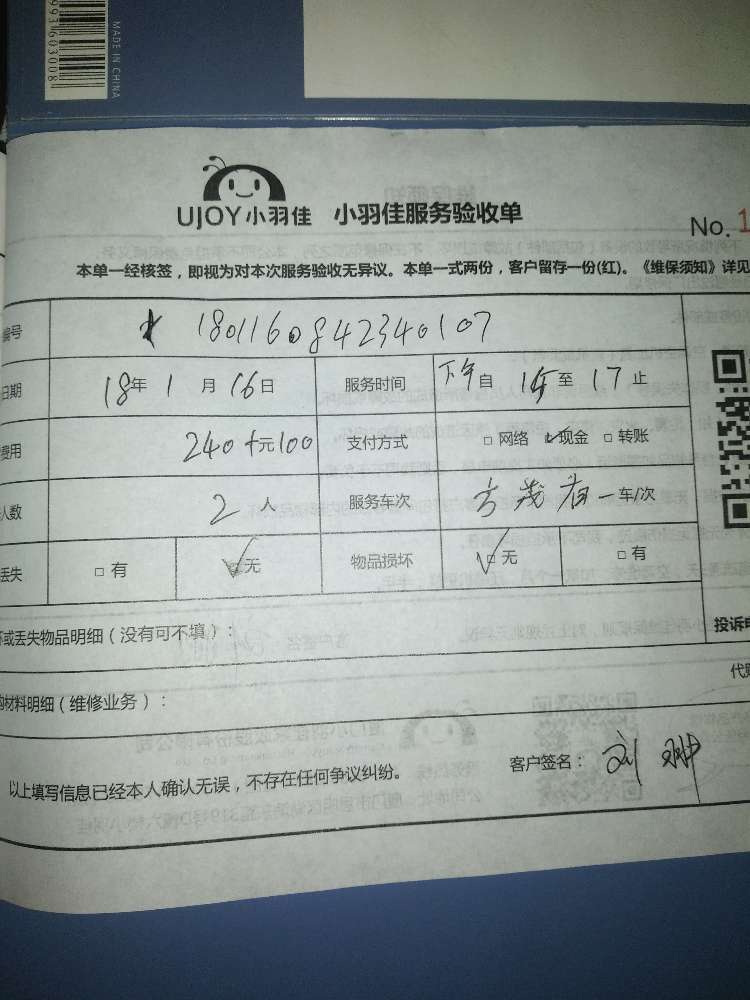 MADE IN CHINA
UJOY小羽佳 小羽佳服务验收单
No. 1
本单一经核签，即视为对本次服务验收无异议。本单一式两份，客户留存一份(红)。《维保须知》详见
编号 1801160842340107
日期 18年 1 月 16日 服务时间 下午自 15至 17 止
费用 240+元100 支付方式 □ 网络 ☑现金 □ 转账
人数 2 人 服务车次 一车/次
丢失 □ 有 ☑无 物品损坏 ☑无 □ 有
坏或丢失物品明细（没有可不填）：
投诉电
购材料明细（维修业务）：
以上填写信息已经本人确认无误，不存在任何争议纠纷。 客户签名： 刘